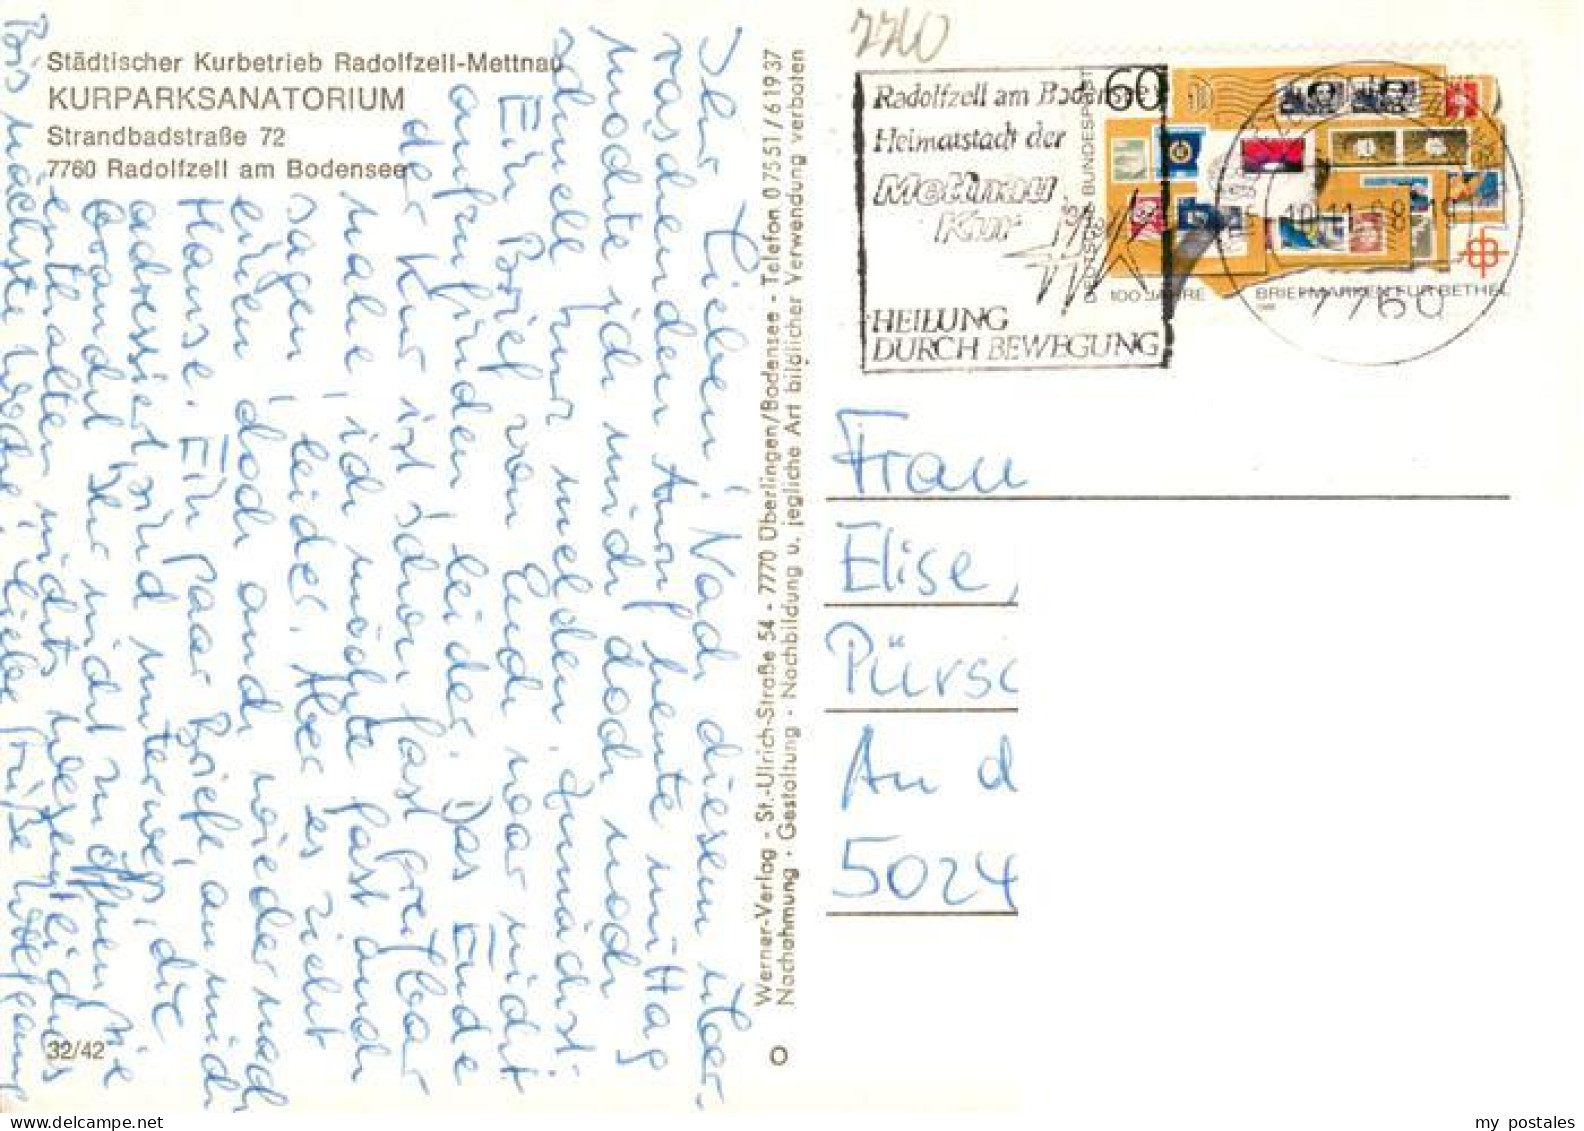 Städtischer Kurbetrieb Radolfzell-Mettnau
KURPARKSANATORIUM
Strandbadstraße 72
7760 Radolfzell am Bodensee
Ihr Lieben! Nach diesem über-
raschenden Anruf heute mittag
möchte ich mich doch noch
schnell kurz melden. Zunächst:
Ein Brief von Euch war nicht
aufzufinden, leider. Das Ende
der Kur ist schon fast greifbar
nahe, ich möchte fast auch
sagen, leider. Aber es zieht
einen doch auch wieder nach
Hause. Ein Paar Briefe, an mich
adressiert, sind unterwegs, die
braucht Ihr nicht zu öffnen, sie
enthalten nichts wesentliches
Bis nächste Woche, liebe Grüße Wolfgang
32/42
Werner-Verlag - St.-Ulrich-Straße 54 - 7770 Überlingen/Bodensee - Telefon 07551/61937
Nachahmung - Gestaltung - Nachbildung u. jegliche Art bildlicher Verwendung verboten
7760
Radolfzell am Bodensee
Heimatstadt der
Mettnau
Kur
HEILUNG
DURCH BEWEGUNG
60
DEUTSCHE BUNDESPOST
100 JAHRE BRIEFMARKEN FÜR BETHEL
7760
Frau
Elise,
Pürsc
An d
5024
my postales